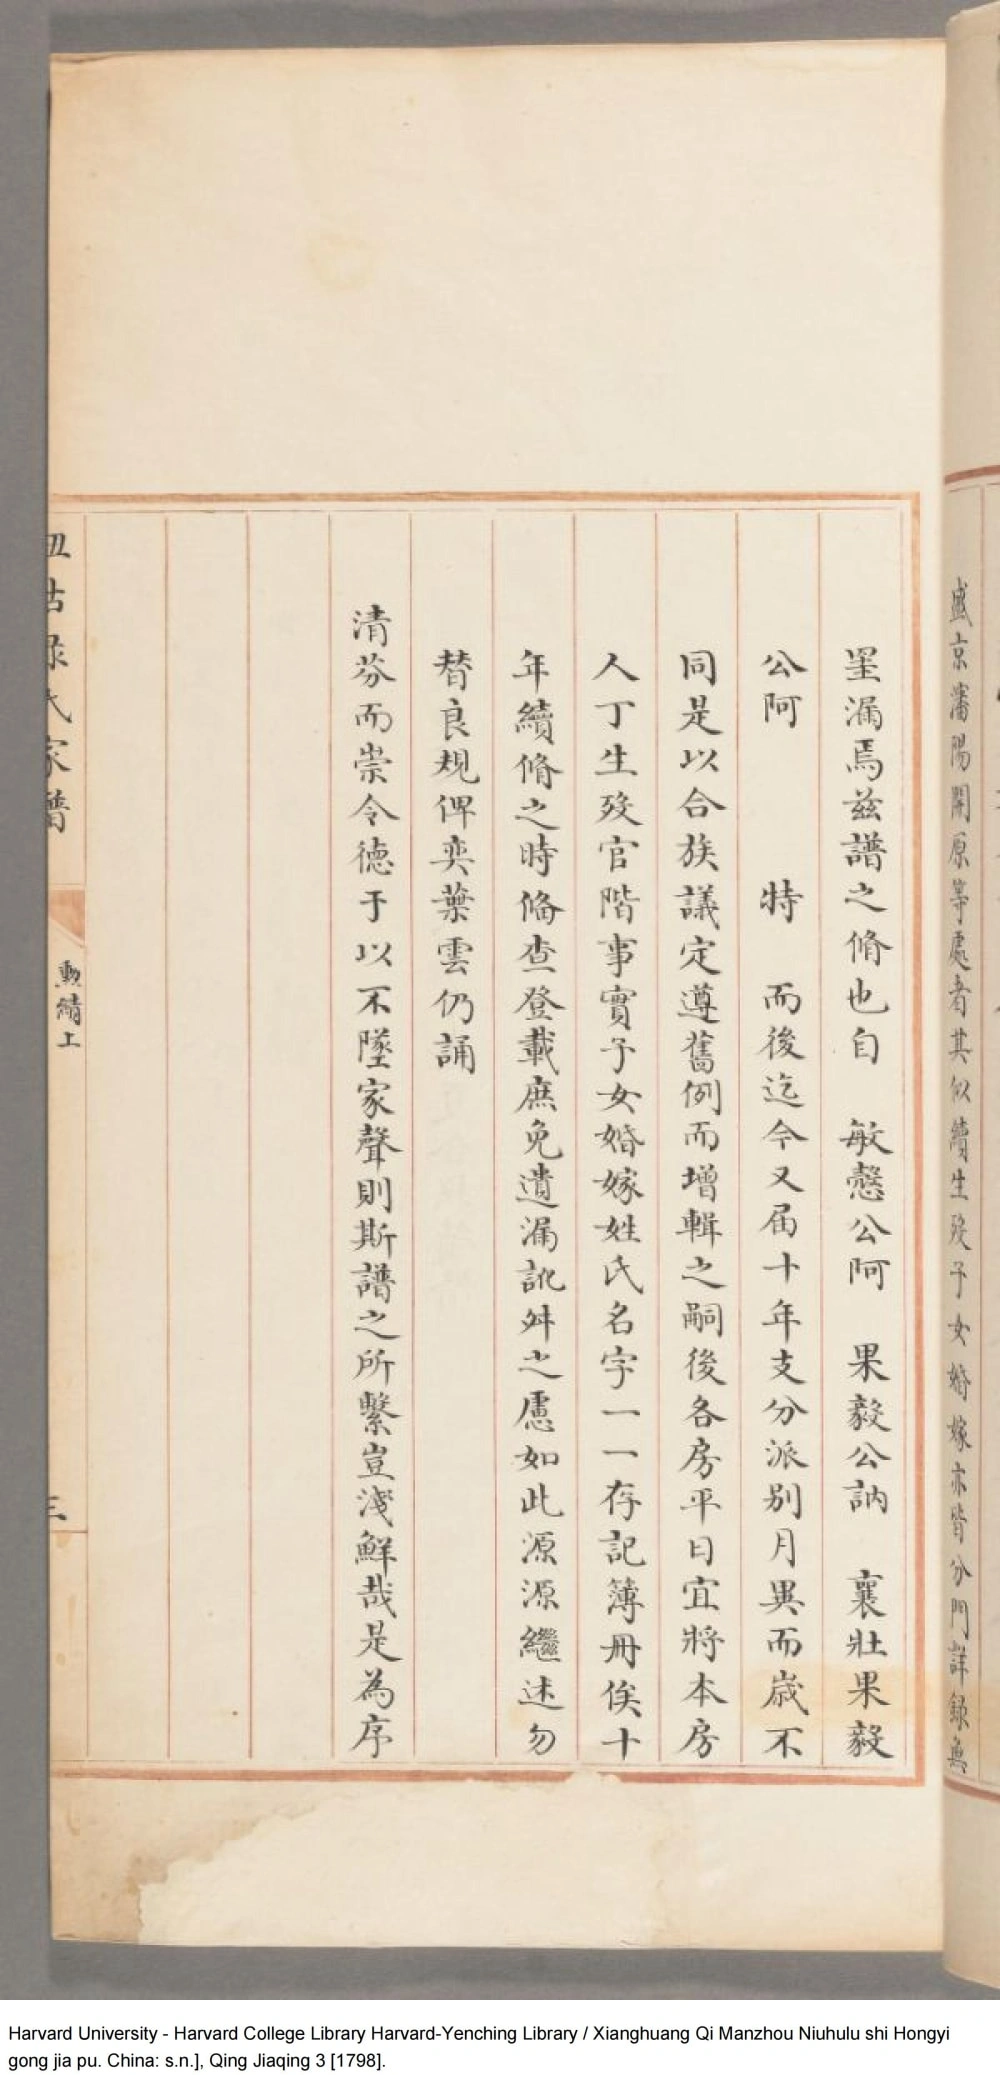 盛京瀋陽開原等處者其似續生歿子女婚嫁亦皆分門詳錄無
罣漏焉兹譜之脩也自　敏慤公阿　果毅公訥　襄壯果毅
公阿　　　特　而後迄今又届十年支分派别月異而歲不
同是以合族議定遵舊例而增輯之嗣後各房平日宜將本房
人丁生歿官階事實子女婚嫁姓氏名字一一存記簿冊俟十
年續脩之時俻查登載庶免遺漏訛舛之慮如此源源繼述勿
替良規俾奕葉雲仍誦
清芬而崇令德于以不墜家聲則斯譜之所繫豈淺鮮哉是為序
丑祜祿氏家譜
勳績上
三
Harvard University - Harvard College Library Harvard-Yenching Library / Xianghuang Qi Manzhou Niuhulu shi Hongyi
gong jia pu. China: s.n.], Qing Jiaqing 3 [1798].